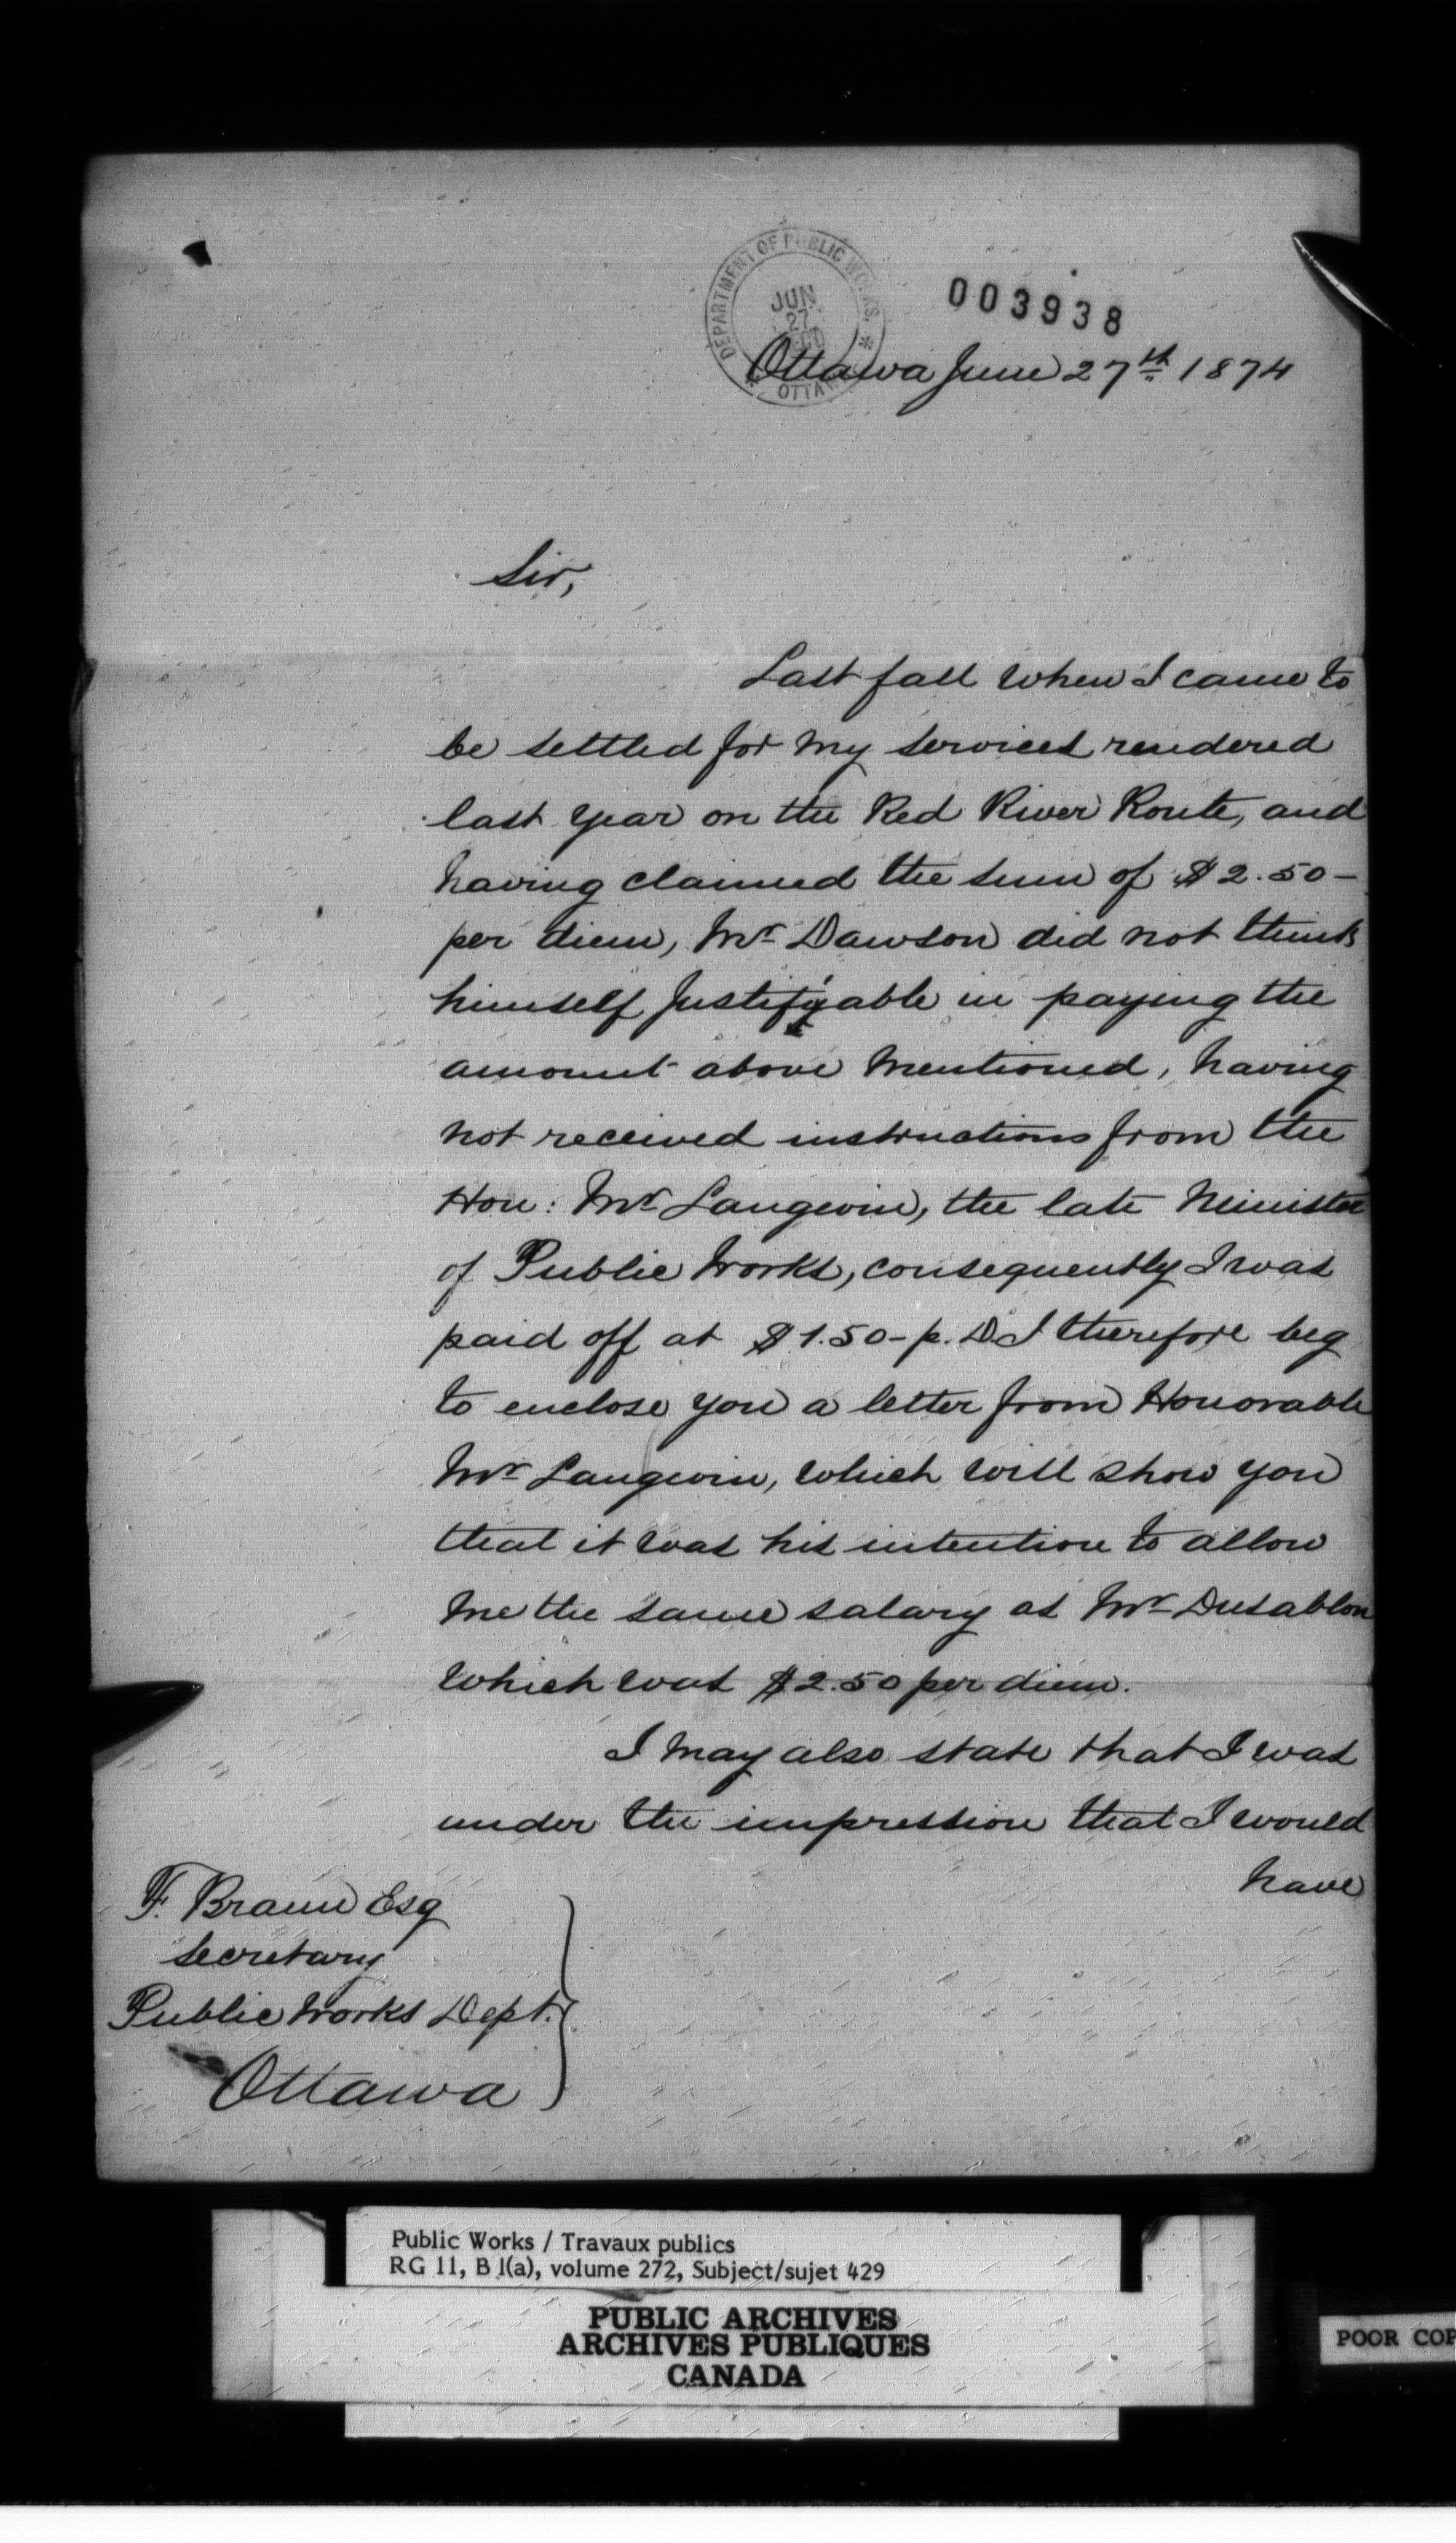 DEPARTMENT OF PUBLIC WORKS. * OTTAWA
JUN
27
003938
Ottawa June 27th 1874
Sir,
Last fall when I came to
be settled for my services rendered
last year on the Red River Route, and
having claimed the sum of $2.50-
per diem, Mr Dawson did not think
himself Justifiable in paying the
amount above mentioned, having
not received instructions from the
Hon: Mr Langevin, the late Minister
of Public Works, consequently I was
paid off at $1.50-p. D. I therefore beg
to enclose you a letter from Honorable
Mr Langevin, which will show you
that it was his intention to allow
me the same salary as Mr Dusablon
which was $2.50 per diem.
I may also state that I was
under the impression that I would
have
F. Braun Esq
Secretary
Public Works Dept.
Ottawa
Public Works / Travaux publics
RG 11, B 1(a), volume 272, Subject/sujet 429
PUBLIC ARCHIVES
ARCHIVES PUBLIQUES
CANADA
POOR COP